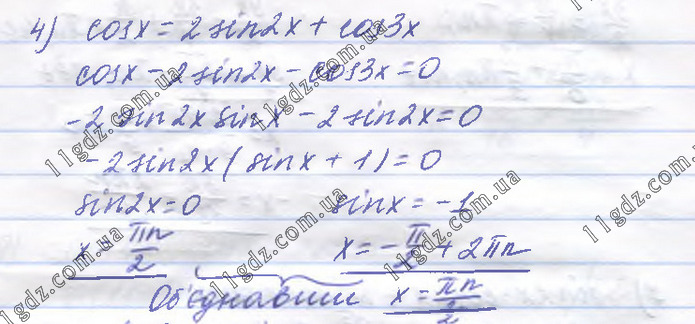 4) cosx = 2sin2x + cos3x
cosx - 2sin2x - cos3x = 0
-2sin2x sinx - 2sin2x = 0
-2sin2x(sinx + 1) = 0
sin2x = 0 sinx = -1
x = πn/2 x = -π/2 + 2πn
Об'єднавши x = πn/2
11gdz.com.ua
11gdz.com.ua
11gdz.com.ua
11gdz.com.ua
11gdz.com.ua
11gdz.com.ua